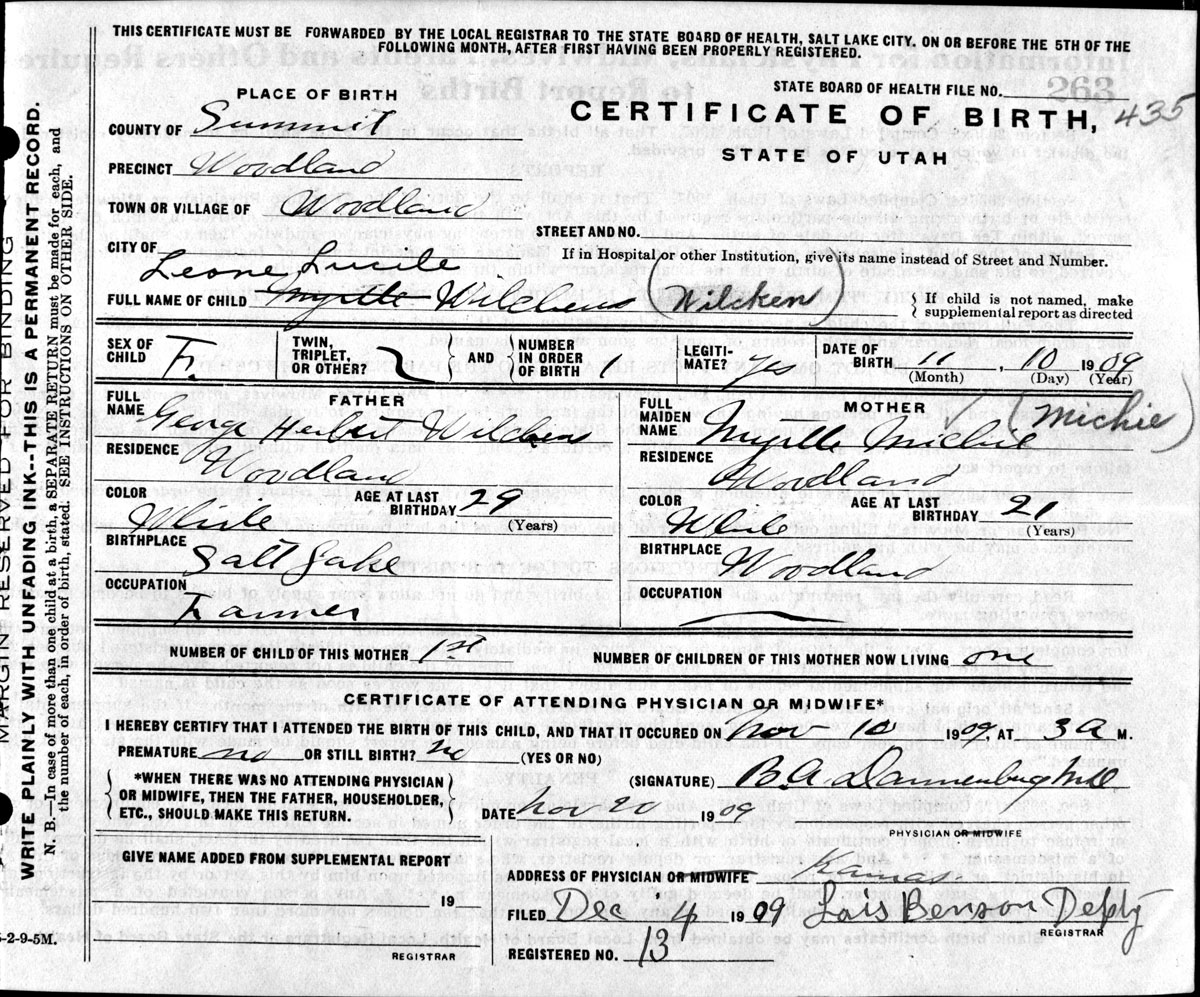 THIS CERTIFICATE MUST BE FORWARDED BY THE LOCAL REGISTRAR TO THE STATE BOARD OF HEALTH, SALT LAKE CITY, ON OR BEFORE THE 5TH OF THE
FOLLOWING MONTH, AFTER FIRST HAVING BEEN PROPERLY REGISTERED.
MARGIN RESERVED FOR BINDING
WRITE PLAINLY WITH UNFADING INK--THIS IS A PERMANENT RECORD.
N. B.—In case of more than one child at a birth, a SEPARATE RETURN must be made for each, and
the number of each, in order of birth, stated. SEE INSTRUCTIONS ON OTHER SIDE.
STATE BOARD OF HEALTH FILE NO. 263
PLACE OF BIRTH
CERTIFICATE OF BIRTH, 435
COUNTY OF Summit
STATE OF UTAH
PRECINCT Woodland
TOWN OR VILLAGE OF Woodland
STREET AND NO.
CITY OF
If in Hospital or other Institution, give its name instead of Street and Number.
Leone Lucile
FULL NAME OF CHILD Myrtle Wilcken (Wilcken)
If child is not named, make
supplemental report as directed
SEX OF CHILD F. TWIN, TRIPLET, OR OTHER? AND NUMBER IN ORDER OF BIRTH 1 LEGITI- MATE? Yes DATE OF BIRTH 11, 10 1909
(Month) (Day) (Year)
FATHER
FULL NAME George Herbert Wilcken
RESIDENCE Woodland
COLOR White AGE AT LAST BIRTHDAY 29
(Years)
BIRTHPLACE Salt Lake
OCCUPATION Farmer
MOTHER
FULL MAIDEN NAME Myrtle Michie (Michie)
RESIDENCE Woodland
COLOR White AGE AT LAST BIRTHDAY 21
(Years)
BIRTHPLACE Woodland
OCCUPATION
NUMBER OF CHILD OF THIS MOTHER 1st NUMBER OF CHILDREN OF THIS MOTHER NOW LIVING one
CERTIFICATE OF ATTENDING PHYSICIAN OR MIDWIFE*
I HEREBY CERTIFY THAT I ATTENDED THE BIRTH OF THIS CHILD, AND THAT IT OCCURED ON Nov 10 1909. AT 3 a M.
PREMATURE no OR STILL BIRTH? no (YES OR NO)
*WHEN THERE WAS NO ATTENDING PHYSICIAN
OR MIDWIFE, THEN THE FATHER, HOUSEHOLDER,
ETC., SHOULD MAKE THIS RETURN.
(SIGNATURE) B. A. Dannenburg M.D.
DATE Nov 20 1909
PHYSICIAN OR MIDWIFE
GIVE NAME ADDED FROM SUPPLEMENTAL REPORT
19
REGISTRAR
ADDRESS OF PHYSICIAN OR MIDWIFE Kamas
FILED Dec 4 1909 Lois Benson Depty
REGISTRAR
REGISTERED NO. 13
6-2-9-5M.